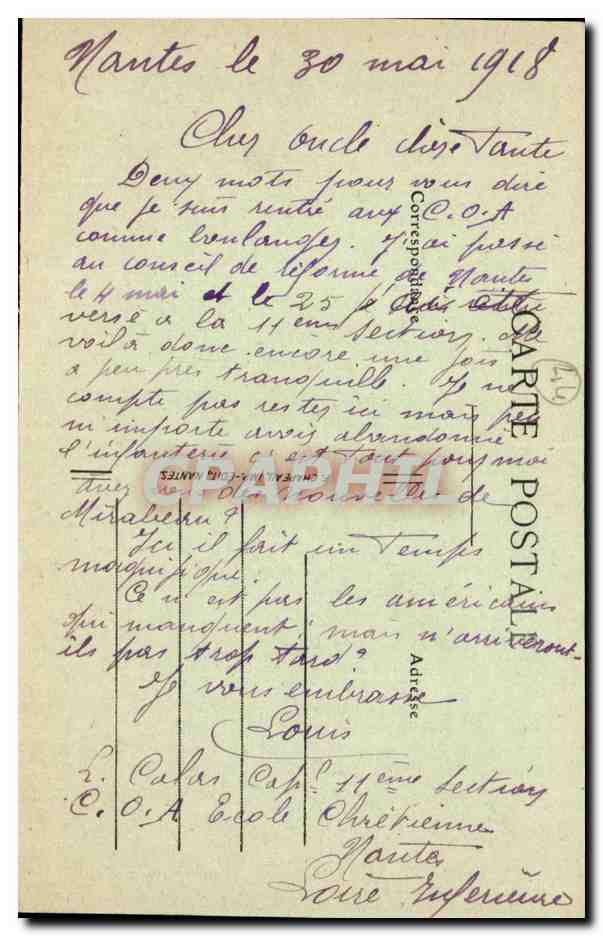 Nantes le 30 mai 1918
Cher Oncle chère Tante
Deux mots pour vous dire
que je suis rentré aux C.O.A
comme boulanger. J'ai passé
au conseil de réforme de Nantes
le 4 mai et le 25 j'ai été
versé à la 11ème Section. Me
voilà donc encore une fois
a peu près tranquille. Je ne
compte pas rester ici mais peu
m'importe avoir abandonné
l'infanterie c'est tout pour moi
avez vous des nouvelles de
Mirabeau?
Ici il fait un Temps
magnifique.
Ce n'est pas les américains
qui manquent; mais n'arriveront-
ils pas trop tard?
Je vous embrasse
Louis
L. Calas Cap! 11ème Section
C.O.A Ecole Chrétienne
Nantes
Loire Inférieure
CARTE POSTALE
Correspondance
Adresse
CHAPEAU, IMP.-EDIT., NANTES
CPAPHIL
44